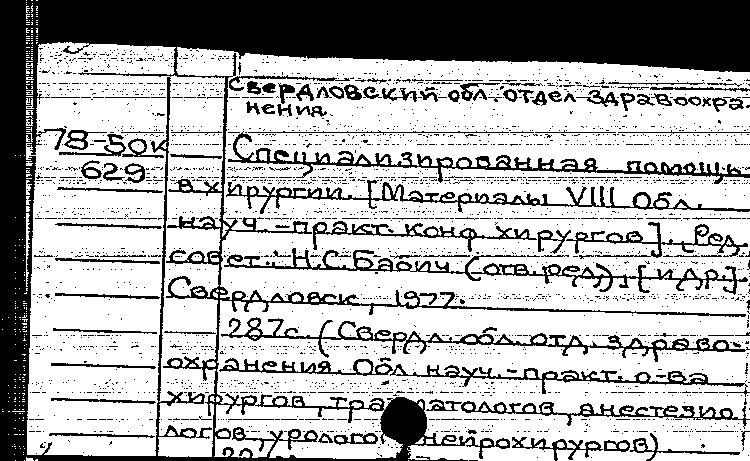 Свердловский обл. отдел здравоохра-
нения
78-50к
629
Специализированная помощь
в хирургии. [Материалы VIII Обл.
науч.-практ. конф. хирургов]. Ред.
совет.: Н.С. Бабич (отв. ред.), [и др.].
Свердловск, 1977.
287с. (Свердл. обл. отд. здраво-
охранения. Обл. науч.-практ. о-ва
хирургов, травматологов, анестезио
логов, урологов нейрохирургов)